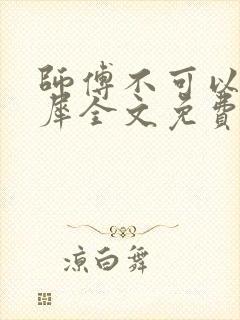 師傅不可以
犀全文免費
凉白舞